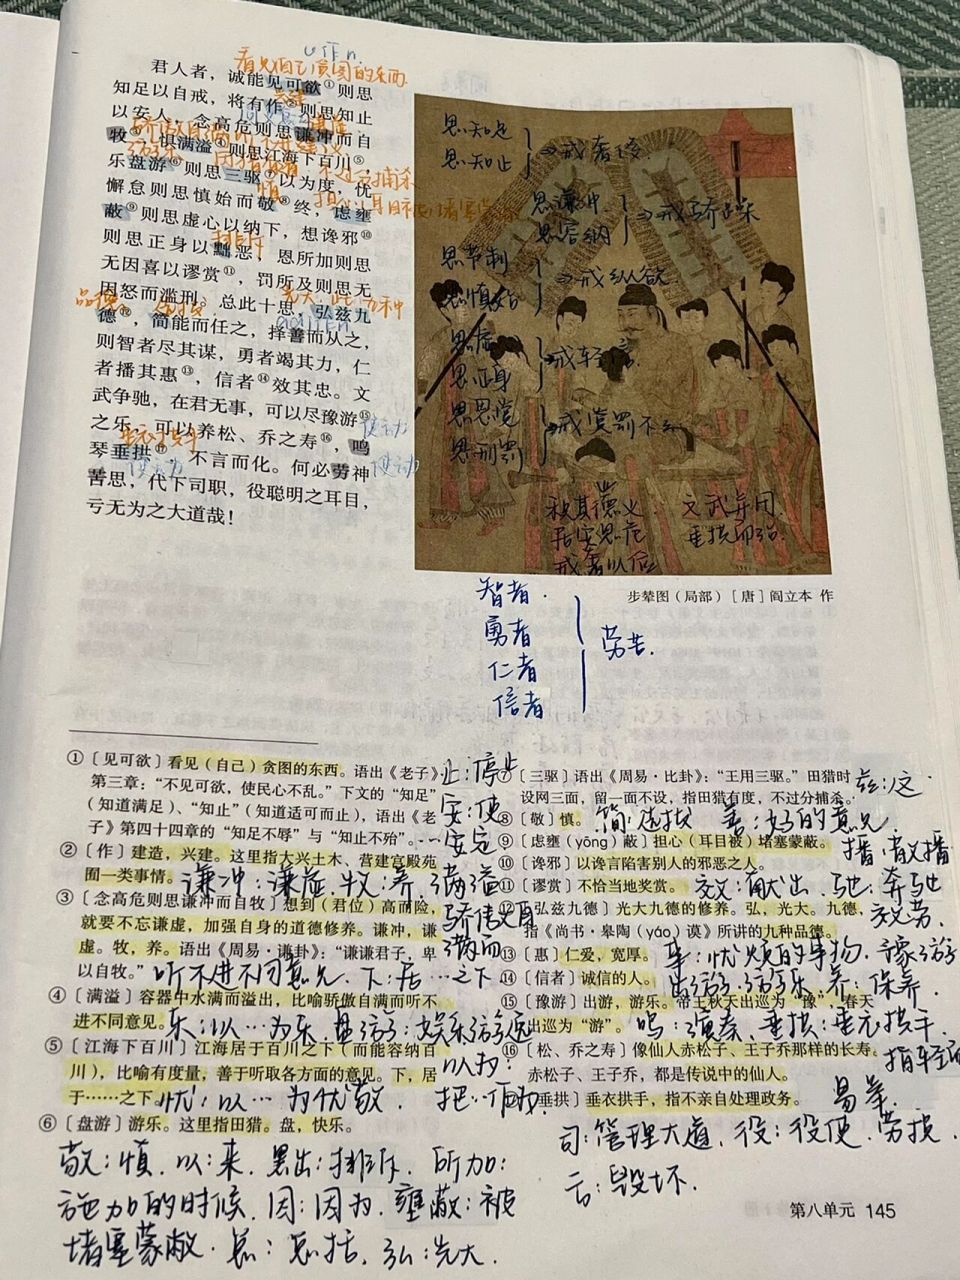 看见自己贪图的东西
君人者，诚能见可欲①则思
知足以自戒，将有作②则思知止
以安人，念高危则思谦冲而自
牧③，惧满溢④则思江海下百川⑤，
乐盘游⑥则思三驱⑦以为度，忧
懈怠则思慎始而敬⑧终，虑壅
蔽⑨则思虚心以纳下，想谗邪⑩
则思正身以黜恶，恩所加则思
无因喜以谬赏⑪，罚所及则思无
因怒而滥刑。总此十思，弘兹九
德⑫，简能而任之，择善而从之，
则智者尽其谋，勇者竭其力，仁
者播其惠⑬，信者⑭效其忠。文
武争驰，在君无事，可以尽豫游⑮
之乐，可以养松、乔之寿⑯，鸣
琴垂拱⑰，不言而化。何必劳神
苦思，代下司职，役聪明之耳目，
亏无为之大道哉！
慎
排斥
品德
使动
使动
使动
思知足
思知止
戒奢侈
思谦冲
思容纳
戒骄
思节制
思慎始
戒纵欲
思虚
思正身
戒轻信
思恩赏
思刑罚
戒赏罚不
积其德义
居安思危
戒奢以俭
文武并用
垂拱而治
步辇图（局部）［唐］阎立本 作
智者
勇者
仁者
信者
劳苦
①〔见可欲〕看见（自己）贪图的东西。语出《老子》
第三章：“不见可欲，使民心不乱。”下文的“知足”
（知道满足）、“知止”（知道适可而止），语出《老
子》第四十四章的“知足不辱”与“知止不殆”。
止：停步
安：使
安定
②〔作〕建造，兴建。这里指大兴土木、营建宫殿苑
囿一类事情。
谦冲：谦虚 牧：养 满溢
③〔念高危则思谦冲而自牧〕想到（君位）高而险，
就要不忘谦虚，加强自身的道德修养。谦冲，谦
虚。牧，养。语出《周易·谦卦》：“谦谦君子，卑
以自牧。”
骄傲自
满而
听不进不同意见 下：居…之下
④〔满溢〕容器中水满而溢出，比喻骄傲自满而听不
进不同意见。
乐：以…为乐 盘游：娱乐游逸
⑤〔江海下百川〕江海居于百川之下（而能容纳百
川），比喻有度量，善于听取各方面的意见。下，居
于……之下。
忧：以…为忧
⑥〔盘游〕游乐。这里指田猎。盘，快乐。
敬：慎 以：来 黜：排斥 所加：
施加的时候 因：因为 壅蔽：被
堵塞蒙蔽 总：总括 弘：光大
⑦〔三驱〕语出《周易·比卦》：“王用三驱。”田猎时
设网三面，留一面不设，指田猎有度，不过分捕杀。
兹：这
⑧〔敬〕慎。
简：选拔 善：好的意见
⑨〔虑壅（yōng）蔽〕担心（耳目被）堵塞蒙蔽。
播：散播
⑩〔谗邪〕以谗言陷害别人的邪恶之人。
⑪〔谬赏〕不恰当地奖赏。
效：献出 驰：奔驰
⑫〔弘兹九德〕光大九德的修养。弘，光大。九德，
指《尚书·皋陶（yáo）谟》所讲的九种品德。
效劳
⑬〔惠〕仁爱，宽厚。
事：忧烦的事物 豫游
⑭〔信者〕诚信的人。
出游 养：保养
⑮〔豫游〕出游，游乐。帝王秋天出巡为“豫”，春天
出巡为“游”。
鸣：演奏 垂拱：垂衣拱手
⑯〔松、乔之寿〕像仙人赤松子、王子乔那样的长寿。
赤松子、王子乔，都是传说中的仙人。
⑰〔垂拱〕垂衣拱手，指不亲自处理政务。
司：管理 役：役使
亏：毁坏
第八单元 145